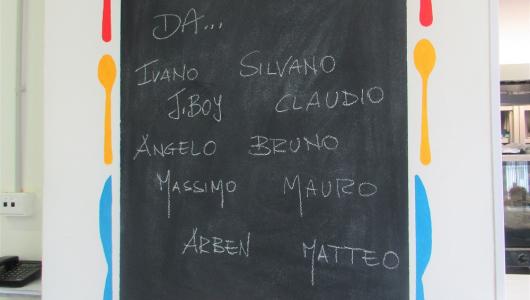 DA...
IVANO SILVANO
J.BOY CLAUDIO
ANGELO BRUNO
MASSIMO MAURO
ARBEN MATTEO